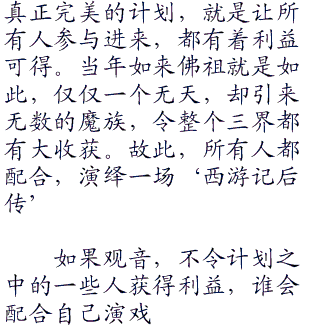 真正完美的计划，就是让所
有人参与进来，都有着利益
可得。当年如来佛祖就是如
此，仅仅一个无天，却引来
无数的魔族，令整个三界都
有大收获。故此，所有人都
配合，演绎一场‘西游记后
传’
如果观音，不令计划之
中的一些人获得利益，谁会
配合自己演戏